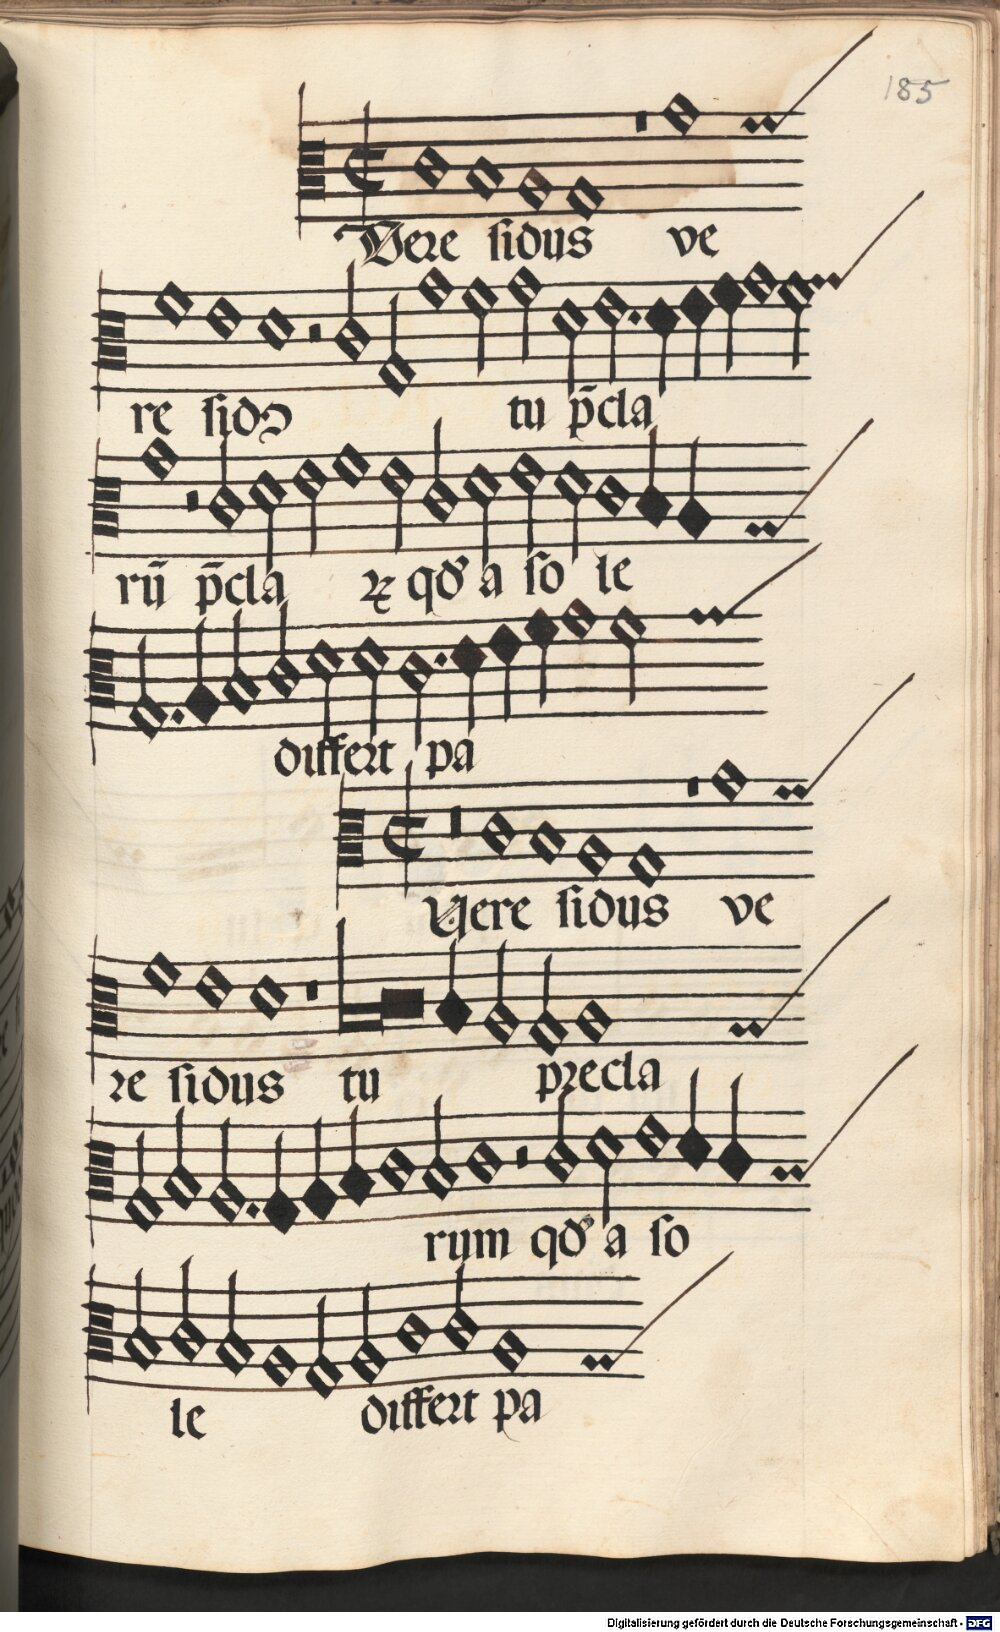 185
Vere sidus ve
re sidꝰ tu p̄cla
rū p̄cla ꝝ qđ a so le
differt pa
Vere sidus ve
re sidus tu precla
rum qđ a so
le differt pa
Digitalisierung gefördert durch die Deutsche Forschungsgemeinschaft - DFG